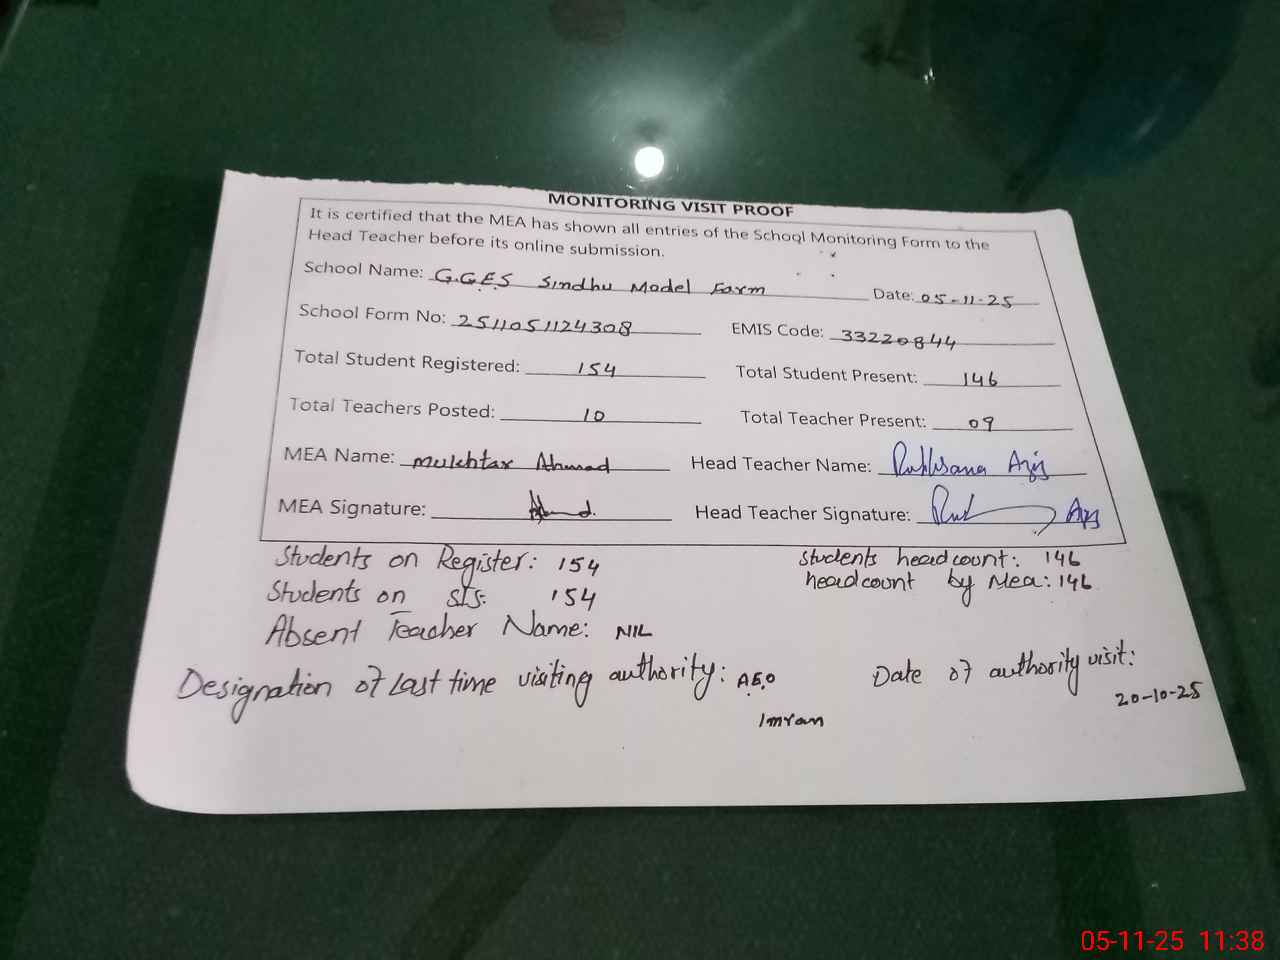 MONITORING VISIT PROOF
It is certified that the MEA has shown all entries of the School Monitoring Form to the
Head Teacher before its online submission.
School Name: G.G.E.S Sindhu Model Farm Date: 05-11-25
School Form No: 2511051124308 EMIS Code: 33220844
Total Student Registered: 154 Total Student Present: 146
Total Teachers Posted: 10 Total Teacher Present: 09
MEA Name: Mukhtar Ahmad Head Teacher Name: Rukhsana Aziz
MEA Signature: Head Teacher Signature:
Students on Register: 154 Students headcount: 146
Students on SIS: 154 headcount by Mea: 146
Absent Teacher Name: NIL
Designation of Last time visiting authority: A.E.O Date of authority visit:
Imran 20-10-25
05-11-25 11:38